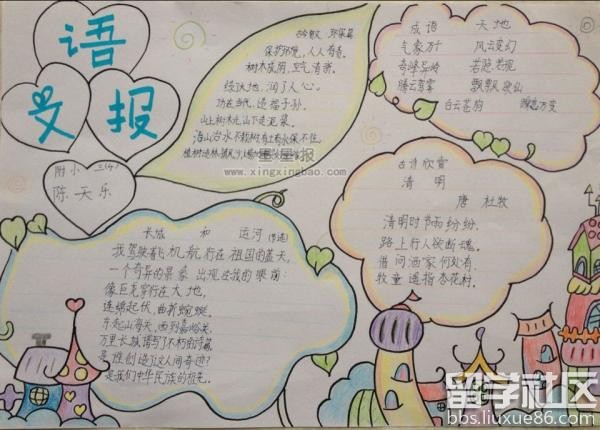 语
文 报
附小 三(4)
陈天乐
环保篇
保护环境,人人有责。
树木成阴,空气清新。
绿化大地,润了人心。
功在当代,造福子孙。
山上
山下
治山
星星报
www.xingxingbao.com
成语 天地
气象万千 风云变幻
奇峰异岭
腾云驾雾 飘飘
白云
古诗欣赏
清 明
唐 杜牧
清明时节雨纷纷,
路上行人欲断魂。
借问酒家何处有,
牧童遥指杏花村。
长城 和 运河
我驾驶着飞机航行在祖国的蓝天,
一个奇异的景象出现在我的眼前:
像巨龙穿行在大地,
连绵起伏,曲折蜿蜒。
东起山海关,西到嘉峪关,
万里长城谱写了不朽的诗篇
是谁创造了这人间奇迹?
是我们中华民族的祖先。
留学社区
bbs.liuxue86.com